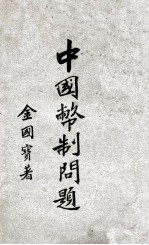 中國幣制問題
金國寶著